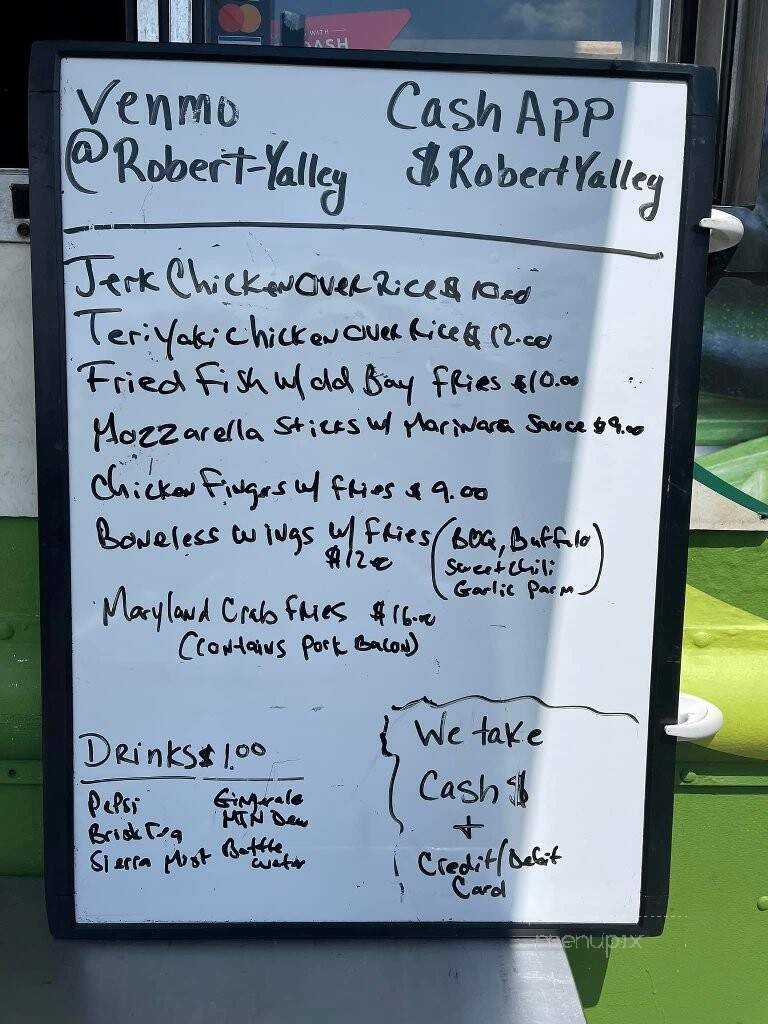 WITH
DASH
Venmo
@Robert-Yalley
Cash App
$RobertYalley
Jerk Chicken over Rice $10.00
Teriyaki Chicken over Rice $12.00
Fried Fish w/ Old Bay fries $10.00
Mozzarella Sticks w/ Marinara Sauce $9.00
Chicken Fingers w/ fries $9.00
Boneless wings w/ fries (BBQ, Buffalo
$12.00
Sweet chili
Garlic Parm)
Maryland Crab fries $16.00
(Contains Pork Bacon)
Drinks $1.00
Pepsi
Brisk Tea
Sierra Mist
Gingerale
MTN Dew
Bottle
water
We take
Cash $
+
Credit/Debit
Card
menupix